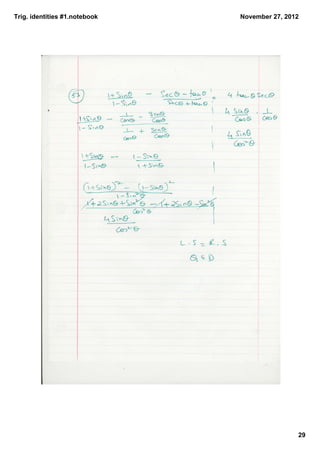 Trig. identities #1.notebook
November 27, 2012
57
(1+Sinθ)/(1-Sinθ) - (Secθ - tanθ)/(Secθ + tanθ) = 4 tanθ Secθ
(1+Sinθ)/(1-Sinθ) - (1/Cosθ - Sinθ/Cosθ)/(1/Cosθ + Sinθ/Cosθ) | 4 Sinθ/Cosθ · 1/Cosθ
4 Sinθ/Cos²θ
(1+Sinθ)/(1-Sinθ) - (1-Sinθ)/(1+Sinθ)
((1+Sinθ)² - (1-Sinθ)²)/(1-Sin²θ)
(1+2Sinθ+Sin²θ - 1+2Sinθ-Sin²θ)/Cos²θ
4Sinθ/Cos²θ
L.S = R.S
Q.E.D
29